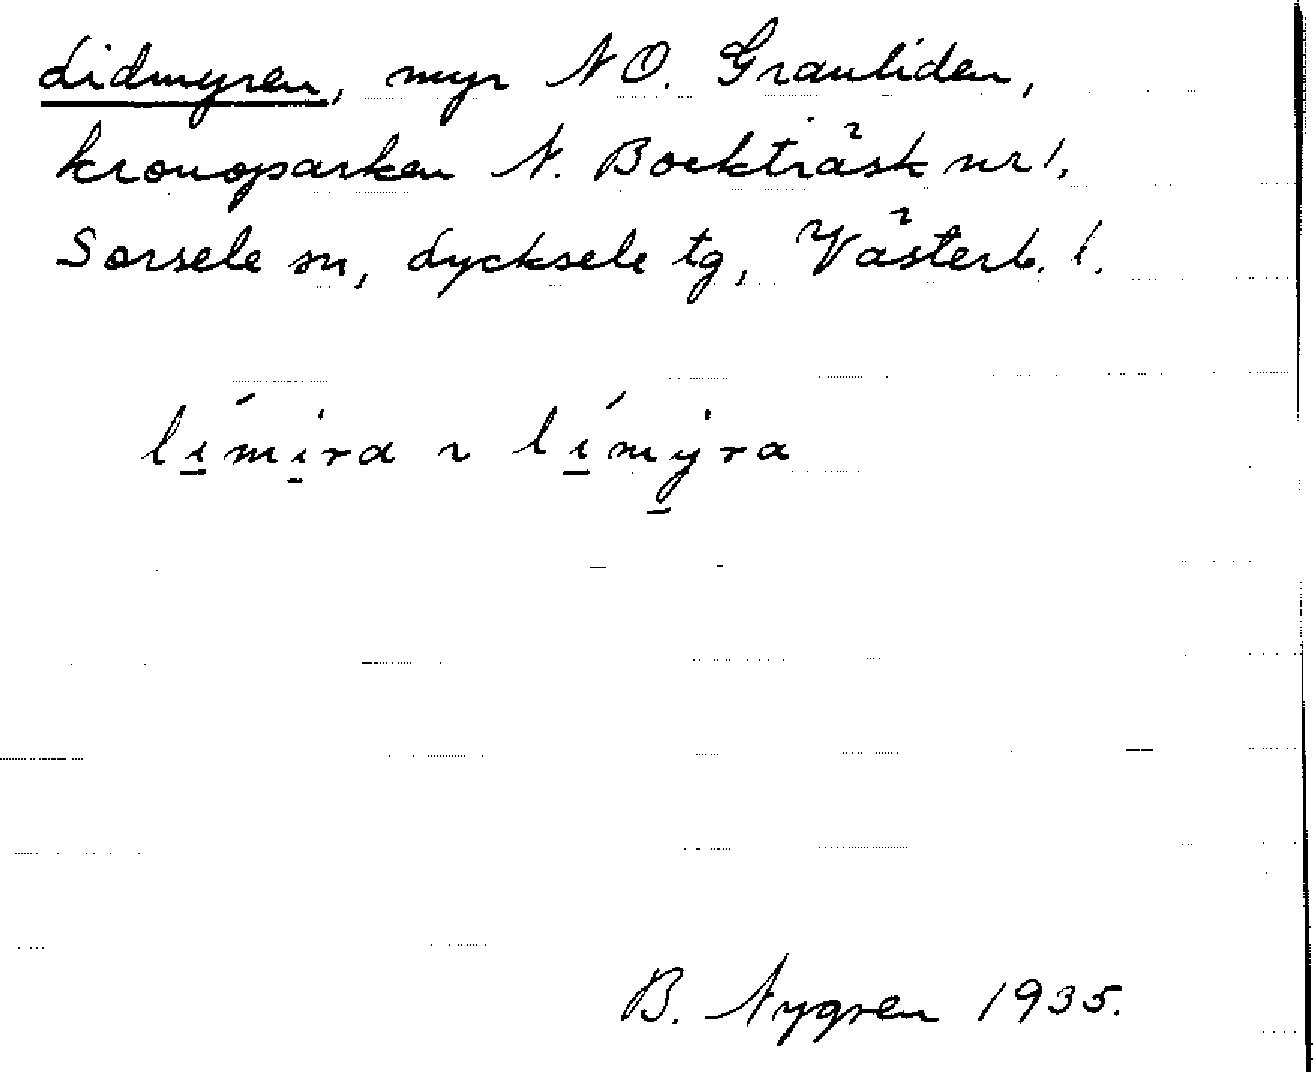 Lidmyren, myr NO. Granliden,
kronoparken N. Bockträsk nr 1,
Sorsele sn, Lycksele tg, Västerb. l.
li̲ḿi̲ra ~ li̲ḿy̲ra
B. Nygren 1935.